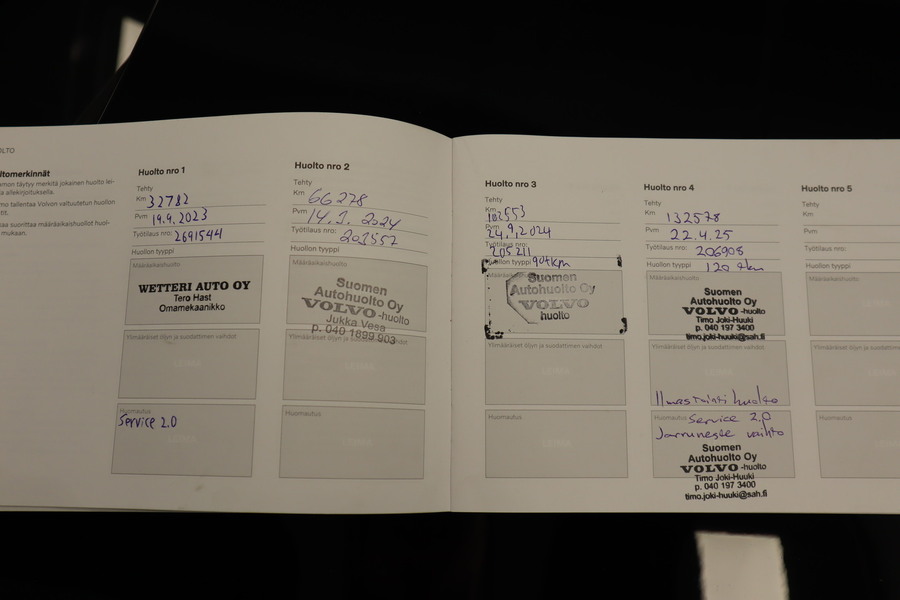 LTO
ltomerkinnät
Huolto nro 1
Tehty
Km 32782
Pvm 19.9.2023
Työtilaus nro: 2691544
Huollon tyyppi
Määräaikaishuolto
WETTERI AUTO OY
Tero Hast
Omamekaanikko
Ylimääräiset öljyn ja suodattimen vaihdot
Huomautus
Service 2.0
Huolto nro 2
Tehty
Km 66278
Pvm 14.1.2024
Työtilaus nro: 201557
Huollon tyyppi
Määräaikaishuolto
Suomen
Autohuolto Oy
VOLVO -huolto
Jukka Vesa
p. 040 1899 903
Ylimääräiset öljyn ja suodattimen vaihdot
Huomautus
Huolto nro 3
Tehty
Km
102553
Pvm
24.9.2024
Työtilaus nro:
205211
Huollon tyyppi 90tkm
Määräaikaishuolto
Suomen
Autohuolto Oy
VOLVO
huolto
Ylimääräiset öljyn ja suodattimen vaihdot
Huomautus
Huolto nro 4
Tehty
Km 132578
Pvm 22.4.25
Työtilaus nro: 206908
Huollon tyyppi 120 tkm
Määräaikaishuolto
Suomen
Autohuolto Oy
VOLVO -huolto
Timo Joki-Huuki
p. 040 197 3400
timo.joki-huuki@sah.fi
Ylimääräiset öljyn ja suodattimen vaihdot
Ilmastointi huolto
Huomautus Service 2.0
Jarruneste vaihto
Suomen
Autohuolto Oy
VOLVO -huolto
Timo Joki-Huuki
p. 040 197 3400
timo.joki-huuki@sah.fi
Huolto nro 5
Tehty
Km
Pvm
Työtilaus nro:
Huollon tyyppi
Määräaikaishuolto
Ylimääräiset öljyn
Huomautus